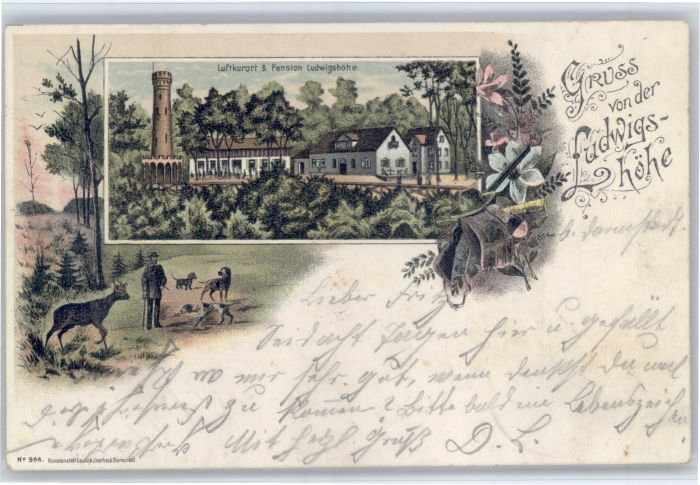 Luftkurort & Pension Ludwigshöhe
Gruss
von der
Ludwigs-
höhe
b. Darmstadt
Lieber Fritz
Seit acht Tagen hier u. gefällt
wo mir sehr gut, wenn denkst Du
zu kommen? Bitte bald ein Lebenszeichen
Mit herzl. Gruß D. L.
No 596.
Kunstanstalt Lautz & Isenbeck Darmstadt.